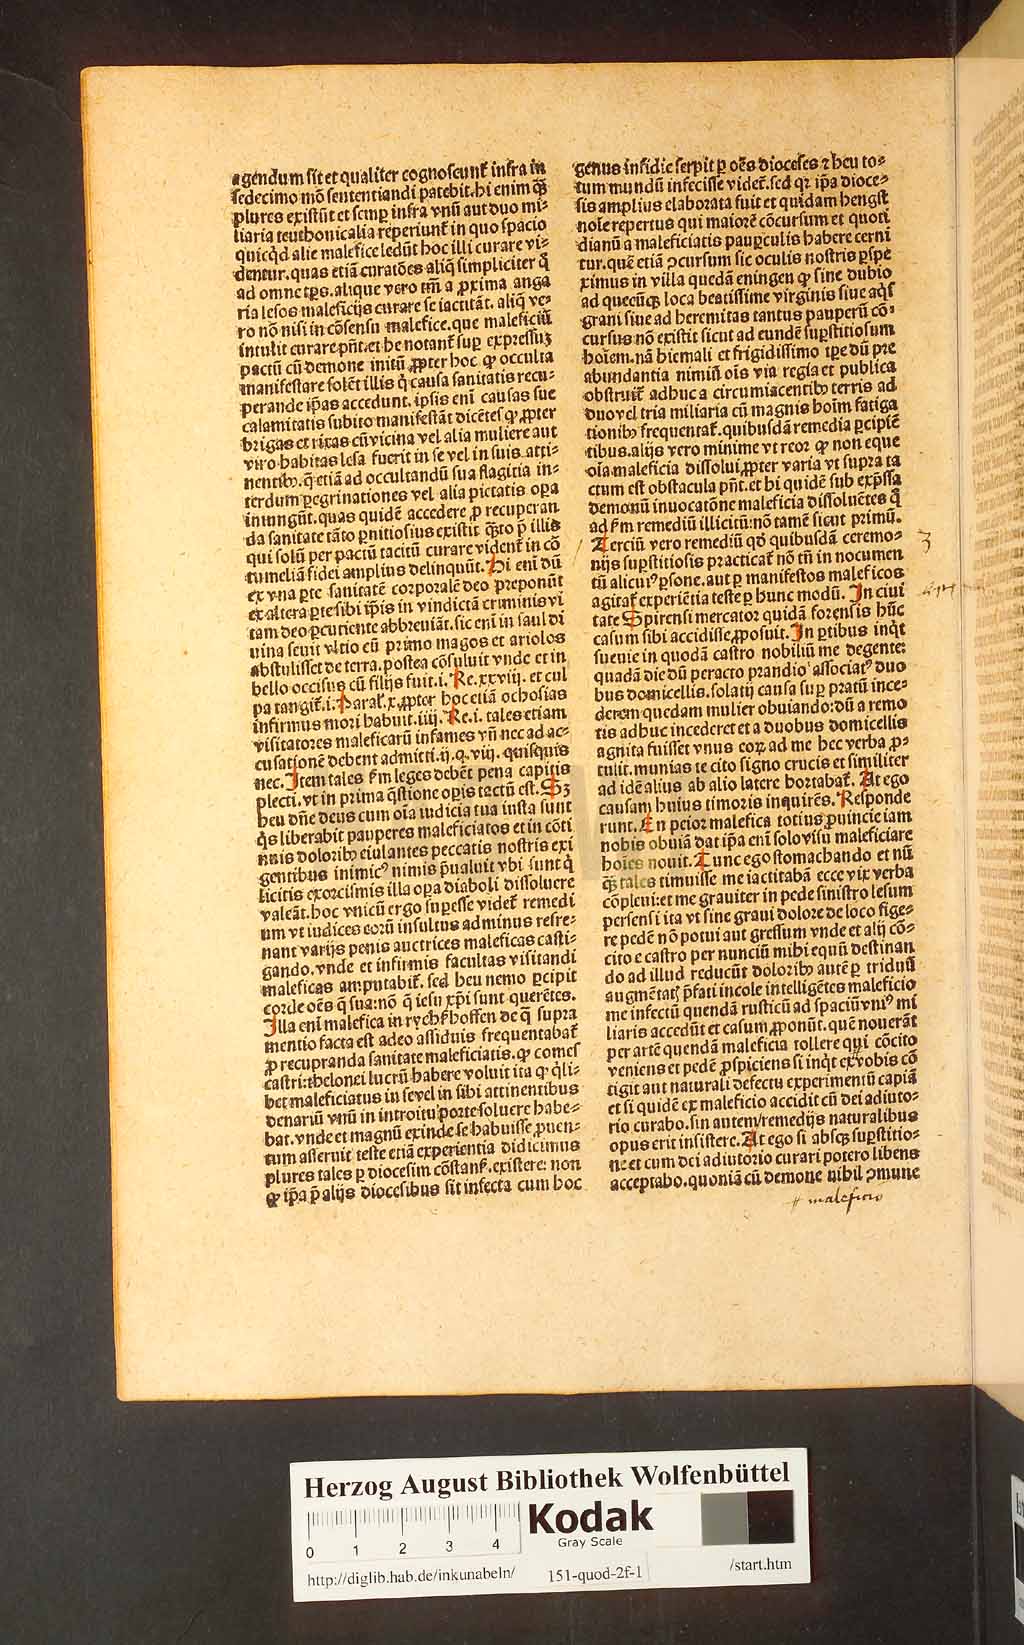 agendum sit et qualiter cognoscunt᷑ infra in
sedecimo mō sententiandi patebit. hi enim qͣꝫ
plures existūt et semꝑ infra vnū aut duo mi⸗
liaria teuthonicalia reperiunt᷑ in quo spacio
quicqͥd alie malefice ledūt hoc illi curare vi⸗
dentur. quas etiā curatōes aliq̄ simpliciter q̄
ad omne tp̄s. alique vero tm̄ a ꝓxima anga
ria lesos maleficijs curare se iactitāt. aliq̄ ve⸗
ro nō nisi in cōsensu malefice. que maleficiū
intulit curare pn̄t. et he notant᷑ suꝑ expressuꝫ
pactū cū demone initū ꝓpter hoc ꝙ occulta
manifestare solēt illis q̇ causa sanitatis recu⸗
perande ip̄as accedunt. ipsis enī causas sue
calamitatis subito manifestāt dicētes ꝙ ꝓpter
brigas et rixas cū vicina vel alia muliere aut
viro habitas lesa fuerit in se vel in suis atti⸗
nentibꝰ. q̄ etiā ad occultandū sua flagitia in⸗
terdum ꝑegrinationes vel alia pietatis oꝑa
iniungūt. quas quidē accedere ꝓ recuperan
da sanitate tāto ꝑnitiosius existit qͣꝫto p̄ illis
qui solū per pactū tacitū curare vident᷑ in cō
tumeliā fidei amplius delinquūt. Hi enī dū
ex vna ꝑte sanitatē corporalē deo preponūt
ex altera ꝑte sibi ip̄is in vindictā criminis vi
tam deo ꝑcutiente abbreuiāt. sic enī in saul di
uina seuit vltio cū primo magos et ariolos
abstulisset de terra. postea cōsuluit vnde et in
bello occisus cū filijs fuit. i. Re. xxviij. et cul
pa tangit᷑. i. Paral᷑. x. ꝓpter hoc etiā ochosias
infirmus mori habuit. iiij. Re. i. tales etiam
visitatores maleficarū infames vn̄ nec ad ac⸗
cusationē debent admitti. ij. q. viij. quisquis
nec. Item tales ẜm leges debēt pena capitis
plecti. vt in prima q̄stione oꝑis tactū est. Sꝫ
heu dn̄e deus cum oīa iudicia tua iusta sunt
qͥs liberabit pauperes maleficiatos et in cōti
nuis doloribꝰ eiulantes peccatis nostris exi
gentibus inimicꝰ nimis p̄ualuit vbi sunt q̇
licitis exorcismis illa oꝑa diaboli dissoluere
valeāt. hoc vnicū ergo suꝑesse videt᷑ remedi
um vt iudices eorū insultus ad minus refre⸗
nant varijs penis auctrices maleficas casti⸗
gando. vnde et infirmis facultas visitandi
maleficas amputabit᷑. sed heu nemo ꝑcipit
corde oēs q̄ sua: nō q̄ iesu xp̄i sunt querētes.
Illa enī malefica in rychẜhoffen de q̄ supra
mentio facta est adeo assiduis frequentabat᷑
ꝓ recupranda sanitate maleficiatis. ꝙ comes
castri: thelonei lucrū habere voluit ita ꝙ qͥli⸗
bet maleficiatus in se vel in sibi attinentibus
denariū vnū in introitu portē soluere habe⸗
bat. vnde et magnū exinde se habuisse ꝓuen⸗
tum asseruit teste etiā experientia didicimus
plures tales ꝑ diocesim cōstanẜ. existere: non
ꝙ ip̄a p̄ alijs diocesibus sit infecta cum hoc
genus insidie serpit ꝑ oēs dioceses ⁊ heu to⸗
tum mundū infecisse videt᷑. sed qꝛ ip̄a dioce⸗
sis amplius elaborata fuit et quidam hengst
nole repertus qui maiorē cōcursum et quoti
dianū a maleficiatis pauꝑculis habere cerni
tur. quē etiā ↄcursum sic oculis nostris ꝑspe
ximus in villa quedā eningen ꝙ sine dubio
ad quecūqꝫ loca beatissime virginis siue aqͥs
grani siue ad heremitas tantus pauperū cō⸗
cursus nō existit sicut ad eundē suꝑstitiosum
hoīem. nā hiemali et frigidissimo tꝑe dū pre
abundantia nimiū oīs via regia et publica
obstruit᷑ adhuc a circumiacentibꝰ terris ad
duo vel tria miliaria cū magnis hoīm fatiga
tionibꝰ frequentat᷑. quibusdā remedia ꝑcipiē
tibus. alijs vero minime vt reor ꝙ non eque
oīa maleficia dissolui ꝓpter varia vt supra ta
ctum est obstacula pn̄t. et hi quidē sub exp̄ssa
demonū inuocatōne maleficia dissoluētes q̄
ad ẜm remediū illicitū: nō tamē sicut primū.
Terciū vero remediū qd̓ quibusdā ceremo⸗
nijs suꝑstitiosis practicat᷑ nō tn̄ in nocumen
tū alicuiꝰ ꝑsone. aut ꝑ manifestos maleficos
agitat᷑ experiētia teste ꝑ hunc modū. In ciui
tate Spirensi mercator quidā forensis hūc
casum sibi accidisse ꝓposuit. In ꝑtibus inqͥt
sueuie in quodā castro nobiliū me degente:
quadā die dū peracto prandio associatꝰ duo
bus domicellis. solatij causa suꝑ pratū ince⸗
derem quedam mulier obuiando: dū a remo
tis adhuc incederet et a duobus domicellis
agnita fuisset vnus eoꝝ ad me hec verba ꝓ⸗
tulit. munias te cito signo crucis et similiter
ad idē alius ab alio latere hortabat᷑. At ego
causam huius timoris inquirēs. Responde
runt. En peior malefica totius ꝓuincie iam
nobis obuiā dat ip̄a enī solo visu maleficiare
hoīes nouit. Tunc ego stomachando et nū
qͣꝫ tales timuisse me iactitabā ecce vix verba
cōpleui: et me grauiter in pede sinistro lesum
persensi ita vt sine graui dolore de loco fige⸗
re pedē nō potui aut gressum vnde et alij cō⸗
cito e castro per nunciū mihi equū destinan
do ad illud reducūt doloribꝰ autē ꝑ triduū
augmētatꝭ p̄fati incole intelligētes maleficio
me infectū quendā rusticū ad spaciū vniꝰ mi
liaris accedūt et casum ꝓponūt. quē nouerāt
per artē quendā maleficia tollere qui cōcito
veniens et pedē ꝓspiciens si inqͥt ex vobis cō
tigit aut naturali defectu experimentū capiā
et si quidē ex maleficio accidit cū dei adiuto⸗
rio curabo. sin autem remedijs naturalibus
opus erit insistere. At ego si absqꝫ suꝑstitio⸗
ne et cum dei adiutorio curari potero libens
acceptabo. quoniā cū demone nihil ↄmune
3
# maleficio
Herzog August Bibliothek Wolfenbüttel
0 1 2 3 4
Kodak
Gray Scale
http://diglib.hab.de/inkunabeln/ 151-quod-2f-1 /start.htm